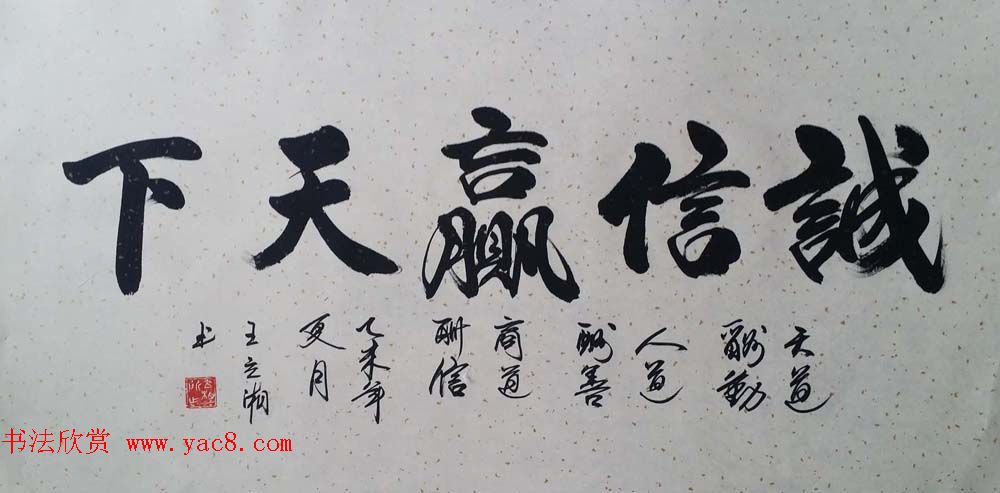 誠信贏天下
天道
酬勤
人道
酬善
商道
酬信
乙未年
夏月
王立
书
书法欣赏 www.yac8.com